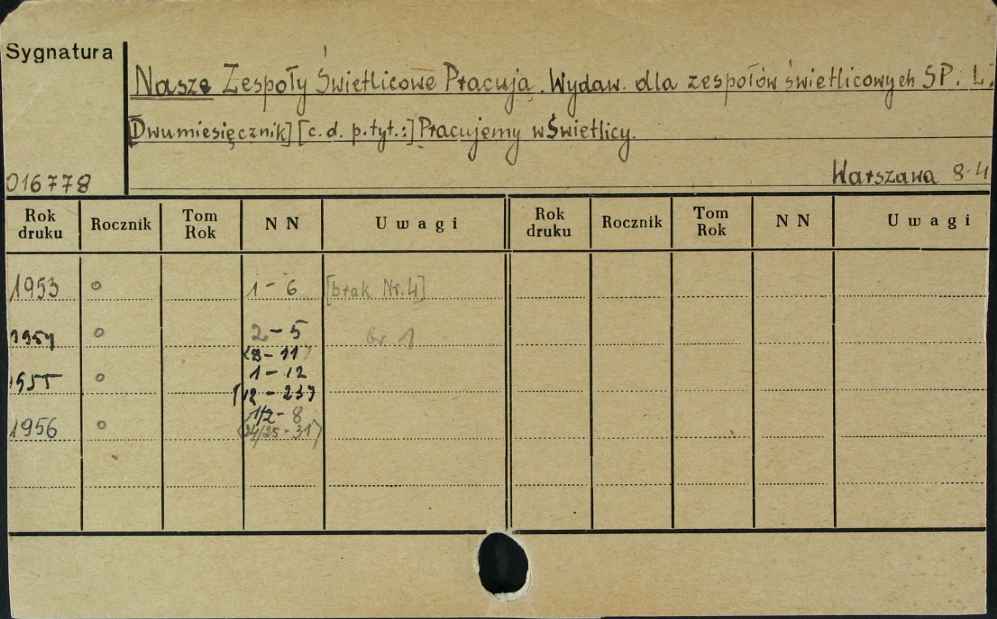 Sygnatura
Nasze Zespoły Świetlicowe Pracują. Wydaw. dla zespołów świetlicowych SP. L.
[Dwumiesięcznik] [c.d. p.tyt.:] Pracujemy w Świetlicy.
016778 Warszawa 8-4
Rok druku Rocznik Tom Rok NN Uwagi Rok druku Rocznik Tom Rok NN Uwagi
1953 o 1-6 [brak Nr.4]
1954 o 2-5 br. 1
(8-11)
1955 o 1-12
(12-23)
1956 o 1/2-8
(24/25-31)